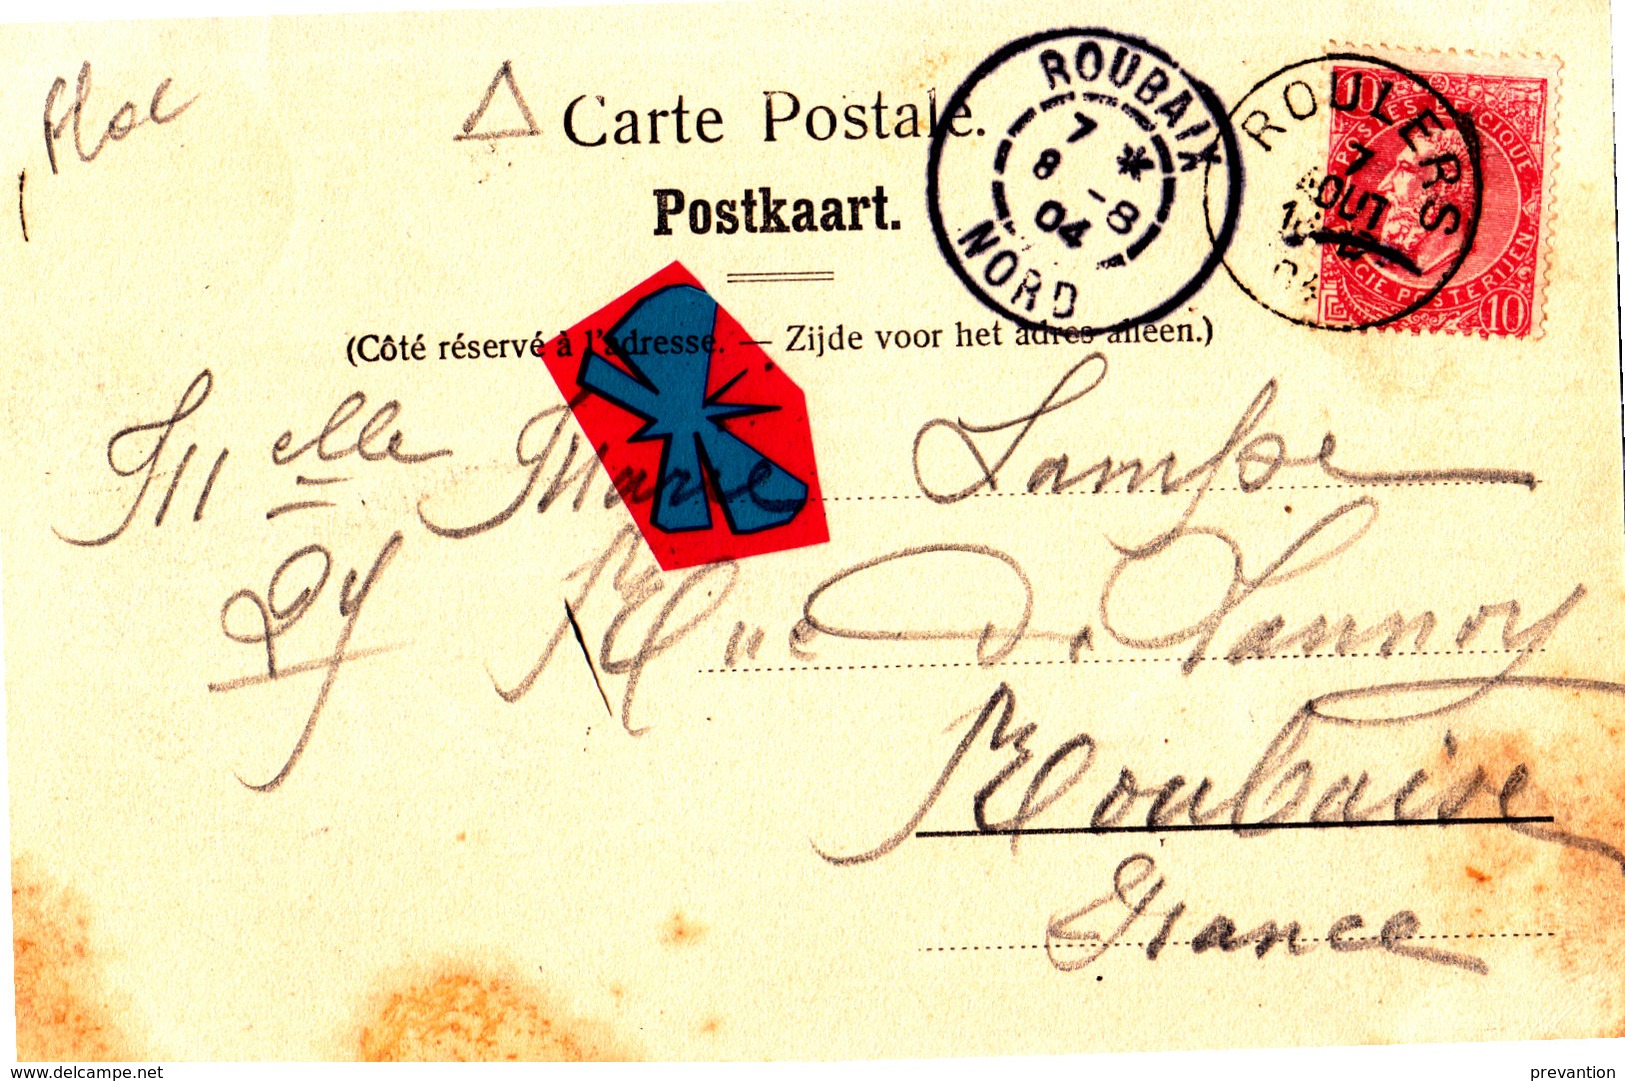 Carte Postale.
Postkaart.
(Côté réservé à l'adresse. — Zijde voor het adres alleen.)
ROUBAIX
7 *
8 -8
04
NORD
ROULERS
7
AOUT
04
10
POSTES BELGIQUE
BELGIE POSTERIJEN
10
Melle Marie
Rue De Lannoy
Roubaix
France
www.delcampe.net
prevantion